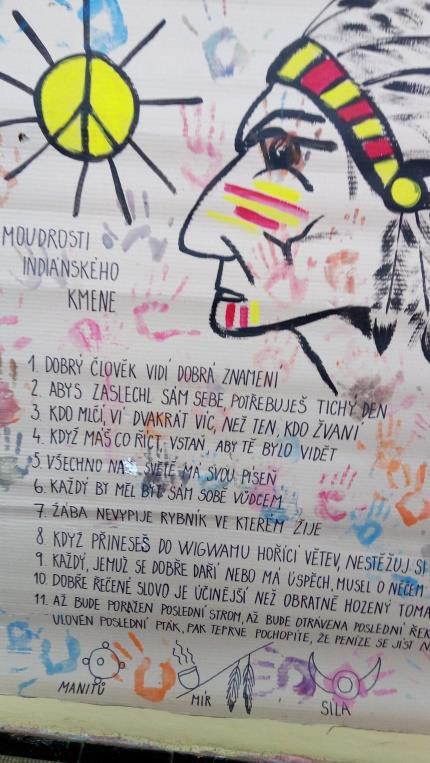 MOUDROSTI
INDIANSKÉHO
KMENE
1. DOBRÝ ČLOVĚK VIDÍ DOBRÁ ZNAMENÍ
2. ABYS ZASLECHL SÁM SEBE, POTŘEBUJEŠ TICHÝ DEN
3. KDO MLČÍ, VÍ DVAKRÁT VÍC, NEŽ TEN, KDO ŽVANÍ
4. KDYŽ MÁŠ CO ŘÍCT, VSTAŇ, ABY TĚ BYLO VIDĚT
5. VŠECHNO NA SVĚTĚ MÁ SVOU PÍSEŇ
6. KAŽDÝ BY MĚL BÝT SÁM SOBĚ VŮDCEM
7. ŽÁBA NEVYPIJE RYBNÍK VE KTERÉM ŽIJE
8. KDYŽ PŘINESEŠ DO WIGWAMU HOŘÍCÍ VĚTEV, NESTĚŽUJ SI
9. KAŽDÝ, JEMUŽ SE DOBŘE DAŘÍ NEBO MÁ ÚSPĚCH, MUSEL O NĚČEM
10. DOBŘE ŘEČENÉ SLOVO JE ÚČINĚJŠÍ NEŽ OBRATNĚ HOZENÝ TOMA
11. AŽ BUDE PORAŽEN POSLEDNÍ STROM, AŽ BUDE OTRÁVENA POSLEDNÍ ŘEK
ULOVEN POSLEDNÍ PTÁK, PAK TEPRVE POCHOPÍTE, ŽE PENÍZE SE JÍST N
MANITŮ
MÍR
SÍLA